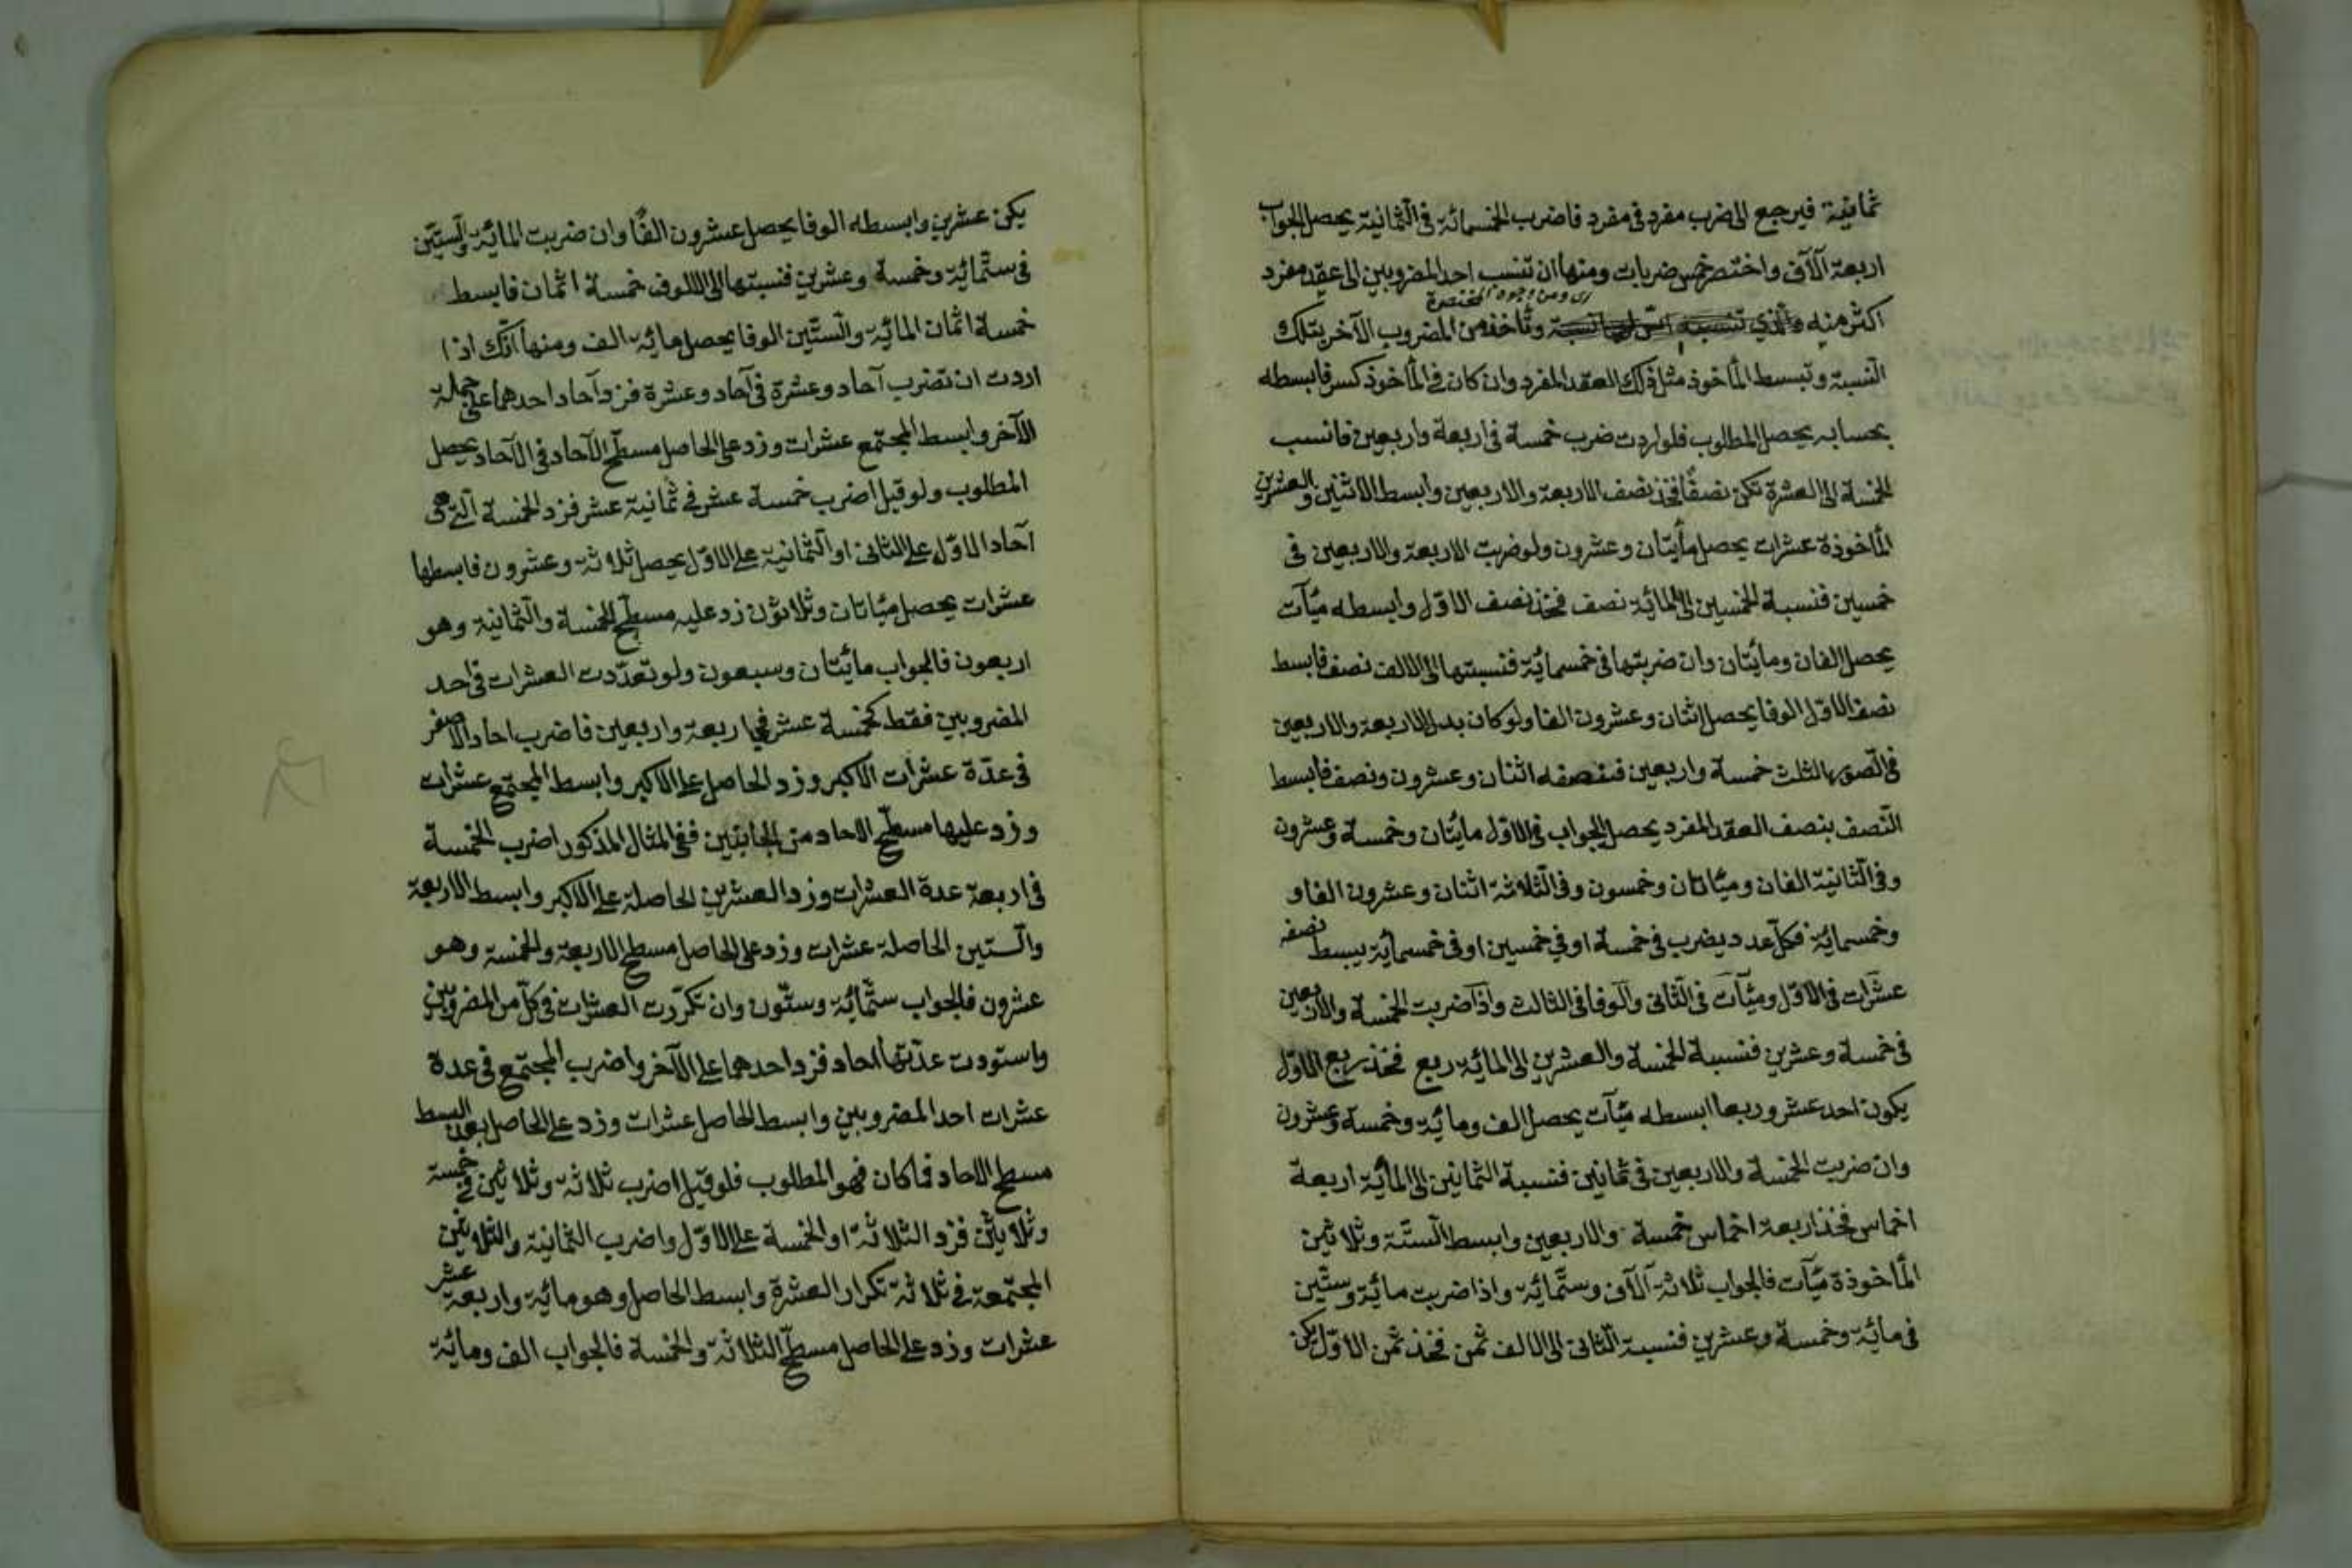 ثمانية فيرجع الى ضرب مفرد فى مفرد فاضرب الخمسمائة فى الثمانية يحصل الجواب
اربعة آلآف واختصر خمس ضربات ومنها ان تنسب احد المضروبين الى عقد مفرد
اى ومن الوجوه المختصرة
اكثر منه وتأخذ من المضروب الآخر بتلك
النسبة وتبسط المأخوذ مثل ذلك العقد المفرد وان كان فى المأخوذ كسر فابسطه
بحسابه يحصل المطلوب فلو اردت ضرب خمسة فى اربعة واربعين فانسب
الخمسة الى العشرة تكن نصفًا فخذ نصف الاربعة والاربعين وابسط الاثنين والعشرين
المأخوذة عشرات يحصل مأيتان وعشرون ولو ضربت الاربعة والاربعين فى
خمسين فنسبة الخمسين الى المائة نصف فخذ نصف الاول وابسطه ميآت
يحصل الفان ومائيتان وان ضربتها فى خمسمائة فنسبتها الى الالف نصف فابسط
نصف الاوّل الوفا يحصل اثنان وعشرون الفا ولو كان بدل الاربعة والاربعين
فى الصور الثلث خمسة واربعين فنصفه اثنان وعشرون ونصف فابسط
النّصف بنصف العقد المفرد يحصل الجواب فى الاول مائيتان وخمسة وعشرون
وفى الثانية الفان وميأتان وخمسون وفى الثلاثة اثنان وعشرون الفا و
وخمسمائة فكل عدد يضرب فى خمسة او في خمسين او فى خمسمائة يبسط نصفه
عشرات فى الاوّل وميآت فى الثانى وآلوفا فى الثالث واذا ضربت الخمسة والاربعين
فى خمسة وعشرين فنسبة الخمسة والعشرين الى المائة ربع فخذ ربع الاوّل
يكون احد عشر وربعا ابسطه ميآت يحصل الف ومائة وخمسة وعشرون
وان ضربت الخمسة والاربعين فى ثمانين فنسبة الثمانين الى المائة اربعة
اخماس فخذ اربعة اخماس خمسة والاربعين وابسط الستّة وثلاثين
المأخوذة ميآت فالجواب ثلاثة آلآف وستّمائة واذا ضربت مائة وستّين
فى مائة وخمسة وعشرين فنسبة الثانى الى الالف ثمن فخذ ثمن الاوّل يكن
يكن عشرين وابسطه الوفا يحصل عشرون الفًا وان ضربت المائة والستّين
فى ستّمائة وخمسة وعشرين فنسبتها الى الالوف خمسة اثمان فابسط
خمسة اثمان المائة والستّين الوفا يحصل مائة الف ومنها انّك اذا
اردت ان تضرب آحاد وعشرة فى آحاد وعشرة فزد آحاد احدهما على جملة
الآخر وابسط المجتمع عشرات وزد على الحاصل مسطّح الآحاد فى الآحاد يحصل
المطلوب ولو قيل اضرب خمسة عشر فى ثمانية عشر فزد الخمسة الّتى هى
آحاد الاوّل على الثانى او الثمانية على الاوّل يحصل ثلاثة وعشرون فابسطها
عشرات يحصل ميأتان وثلاثون زد عليه مسطّح الخمسة والثمانية وهو
اربعون فالجواب مائيتان وسبعون ولو تعدّدت العشرات فى احد
المضروبين فقط كخمسة عشر في اربعة واربعين فاضرب احاد الاصغر
فى عدّة عشرات الاكبر وزد الحاصل على الاكبر وابسط المجتمع عشرات
وزد عليها مسطّح الاحاد من الجانبين ففى المثال المذكور اضرب الخمسة
فى اربعة عدة العشرات وزد العشرين الحاصلة على الاكبر وابسط الاربعة
والستّين الحاصلة عشرات وزد على الحاصل مسطح الاربعة والخمسة وهو
عشرون فالجواب ستّمائة وستّون وان تكرّرت العشرات فى كلّ من المضروبين
واستودت عدّتها احاد فزد احدهما على الآخر واضرب المجتمع فى عدة
عشرات احد المضروبين وابسط الحاصل عشرات وزد على الحاصل بعد البسط
مسطح الاحاد فما كان فهو المطلوب فلو قيل اضرب ثلاثة وثلاثين فى خمسة
وثلاثين فزد الثلاثة او الخمسة على الاوّل واضرب الثمانية والثلاثين
المجتمعة فى ثلاثة تكرار العشرة وابسط الحاصل وهو مائة واربعة عشر
عشرات وزد على الحاصل مسطّح الثلاثة والخمسة فالجواب الف ومائة